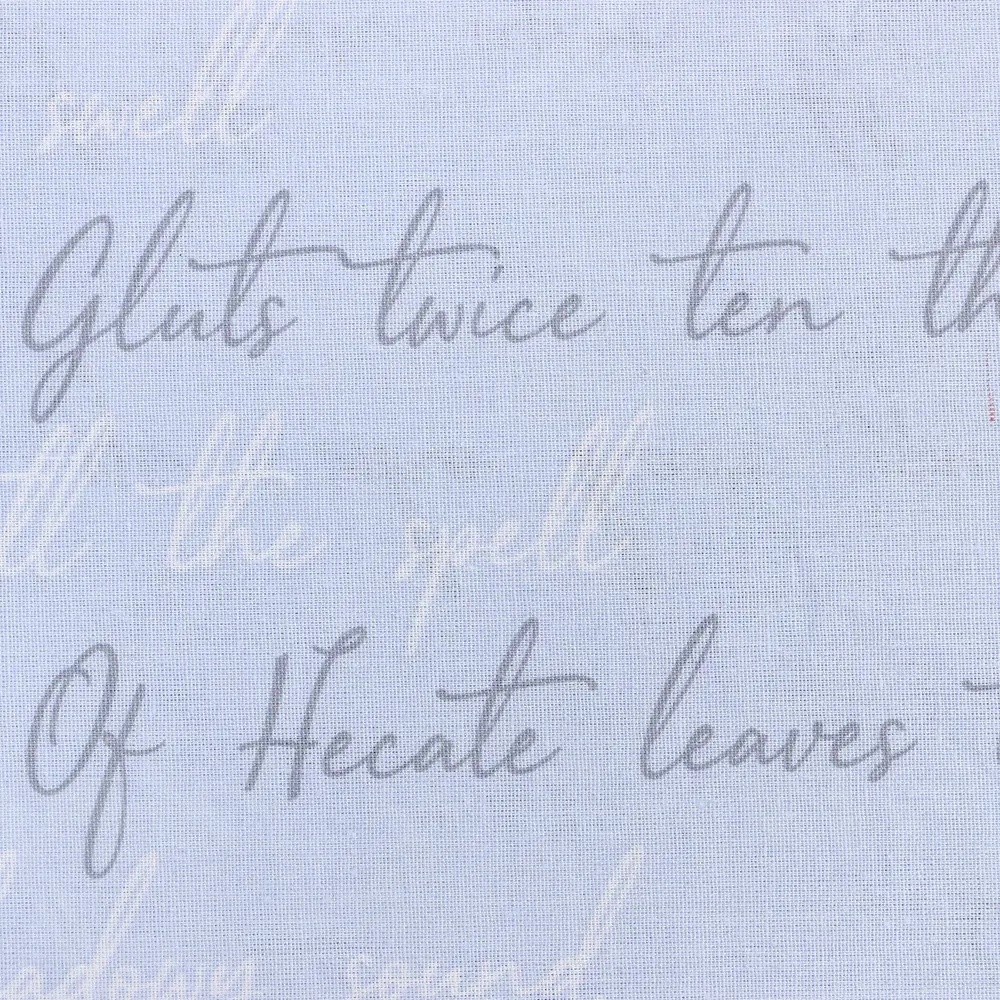 swell
Gluts twice ten th
ll the spell
Of Hecate leaves
adowy sound